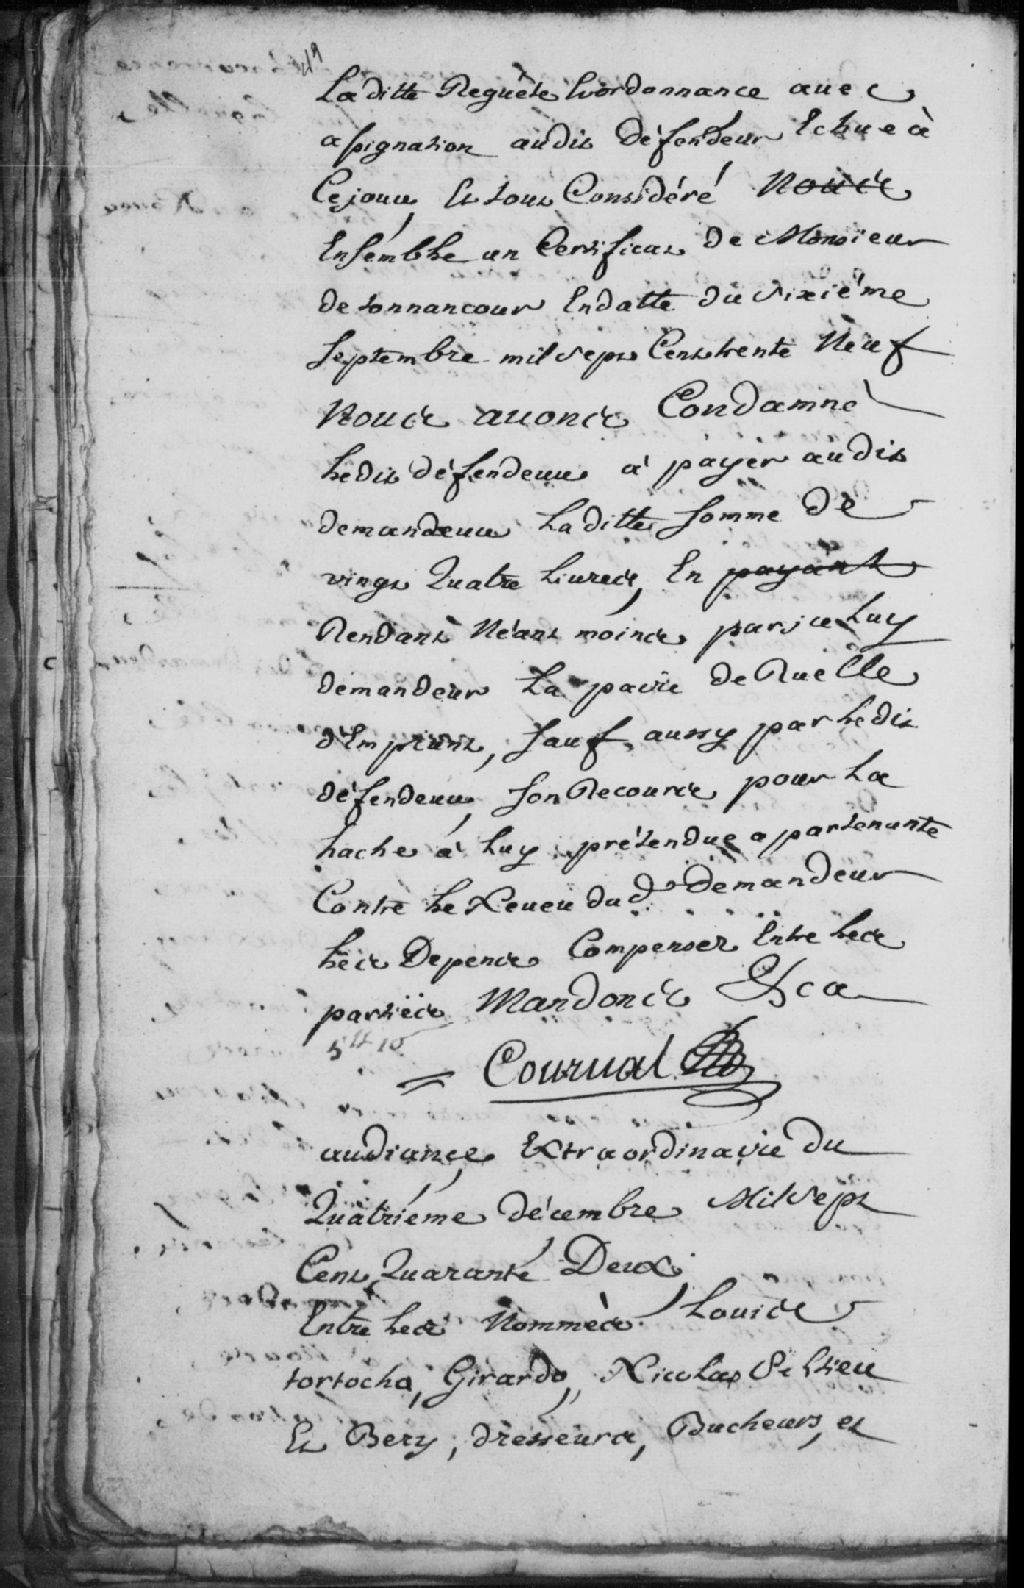 La ditte Requête & ordonnance avec
assignation audit défendeur Echue à
Cejour, Et tout Considéré Nous
Ensemble un Certificat de Monsieur
de tonnancour Endatte du sixiéme
septembre mil sept Cent trente Neuf
Nous avons Condamné
Ledit défendeur à payer audit
demandeur La ditte somme de
vingt Quatre Livres, En payant
Rendant Néant moins par iceluy
demandeur La paire de Ruelle
d'Emprunt, sauf aussy par Ledit
défendeur son Recours pour La
hache à Luy prétendue apartenante
Contre Le Neveu dud. Demandeur
Les Depens Compensez Entre Les
parties Mandons &ca
5lt 10
= Courval
audiance Extraordinaire du
Quatriéme décembre Mil sept
Cent Quarante Deux
Entre Les Nommés Louis
tortocha, Girardo, Nicolas
Et Bery, dresseurs, Bucheurs, et